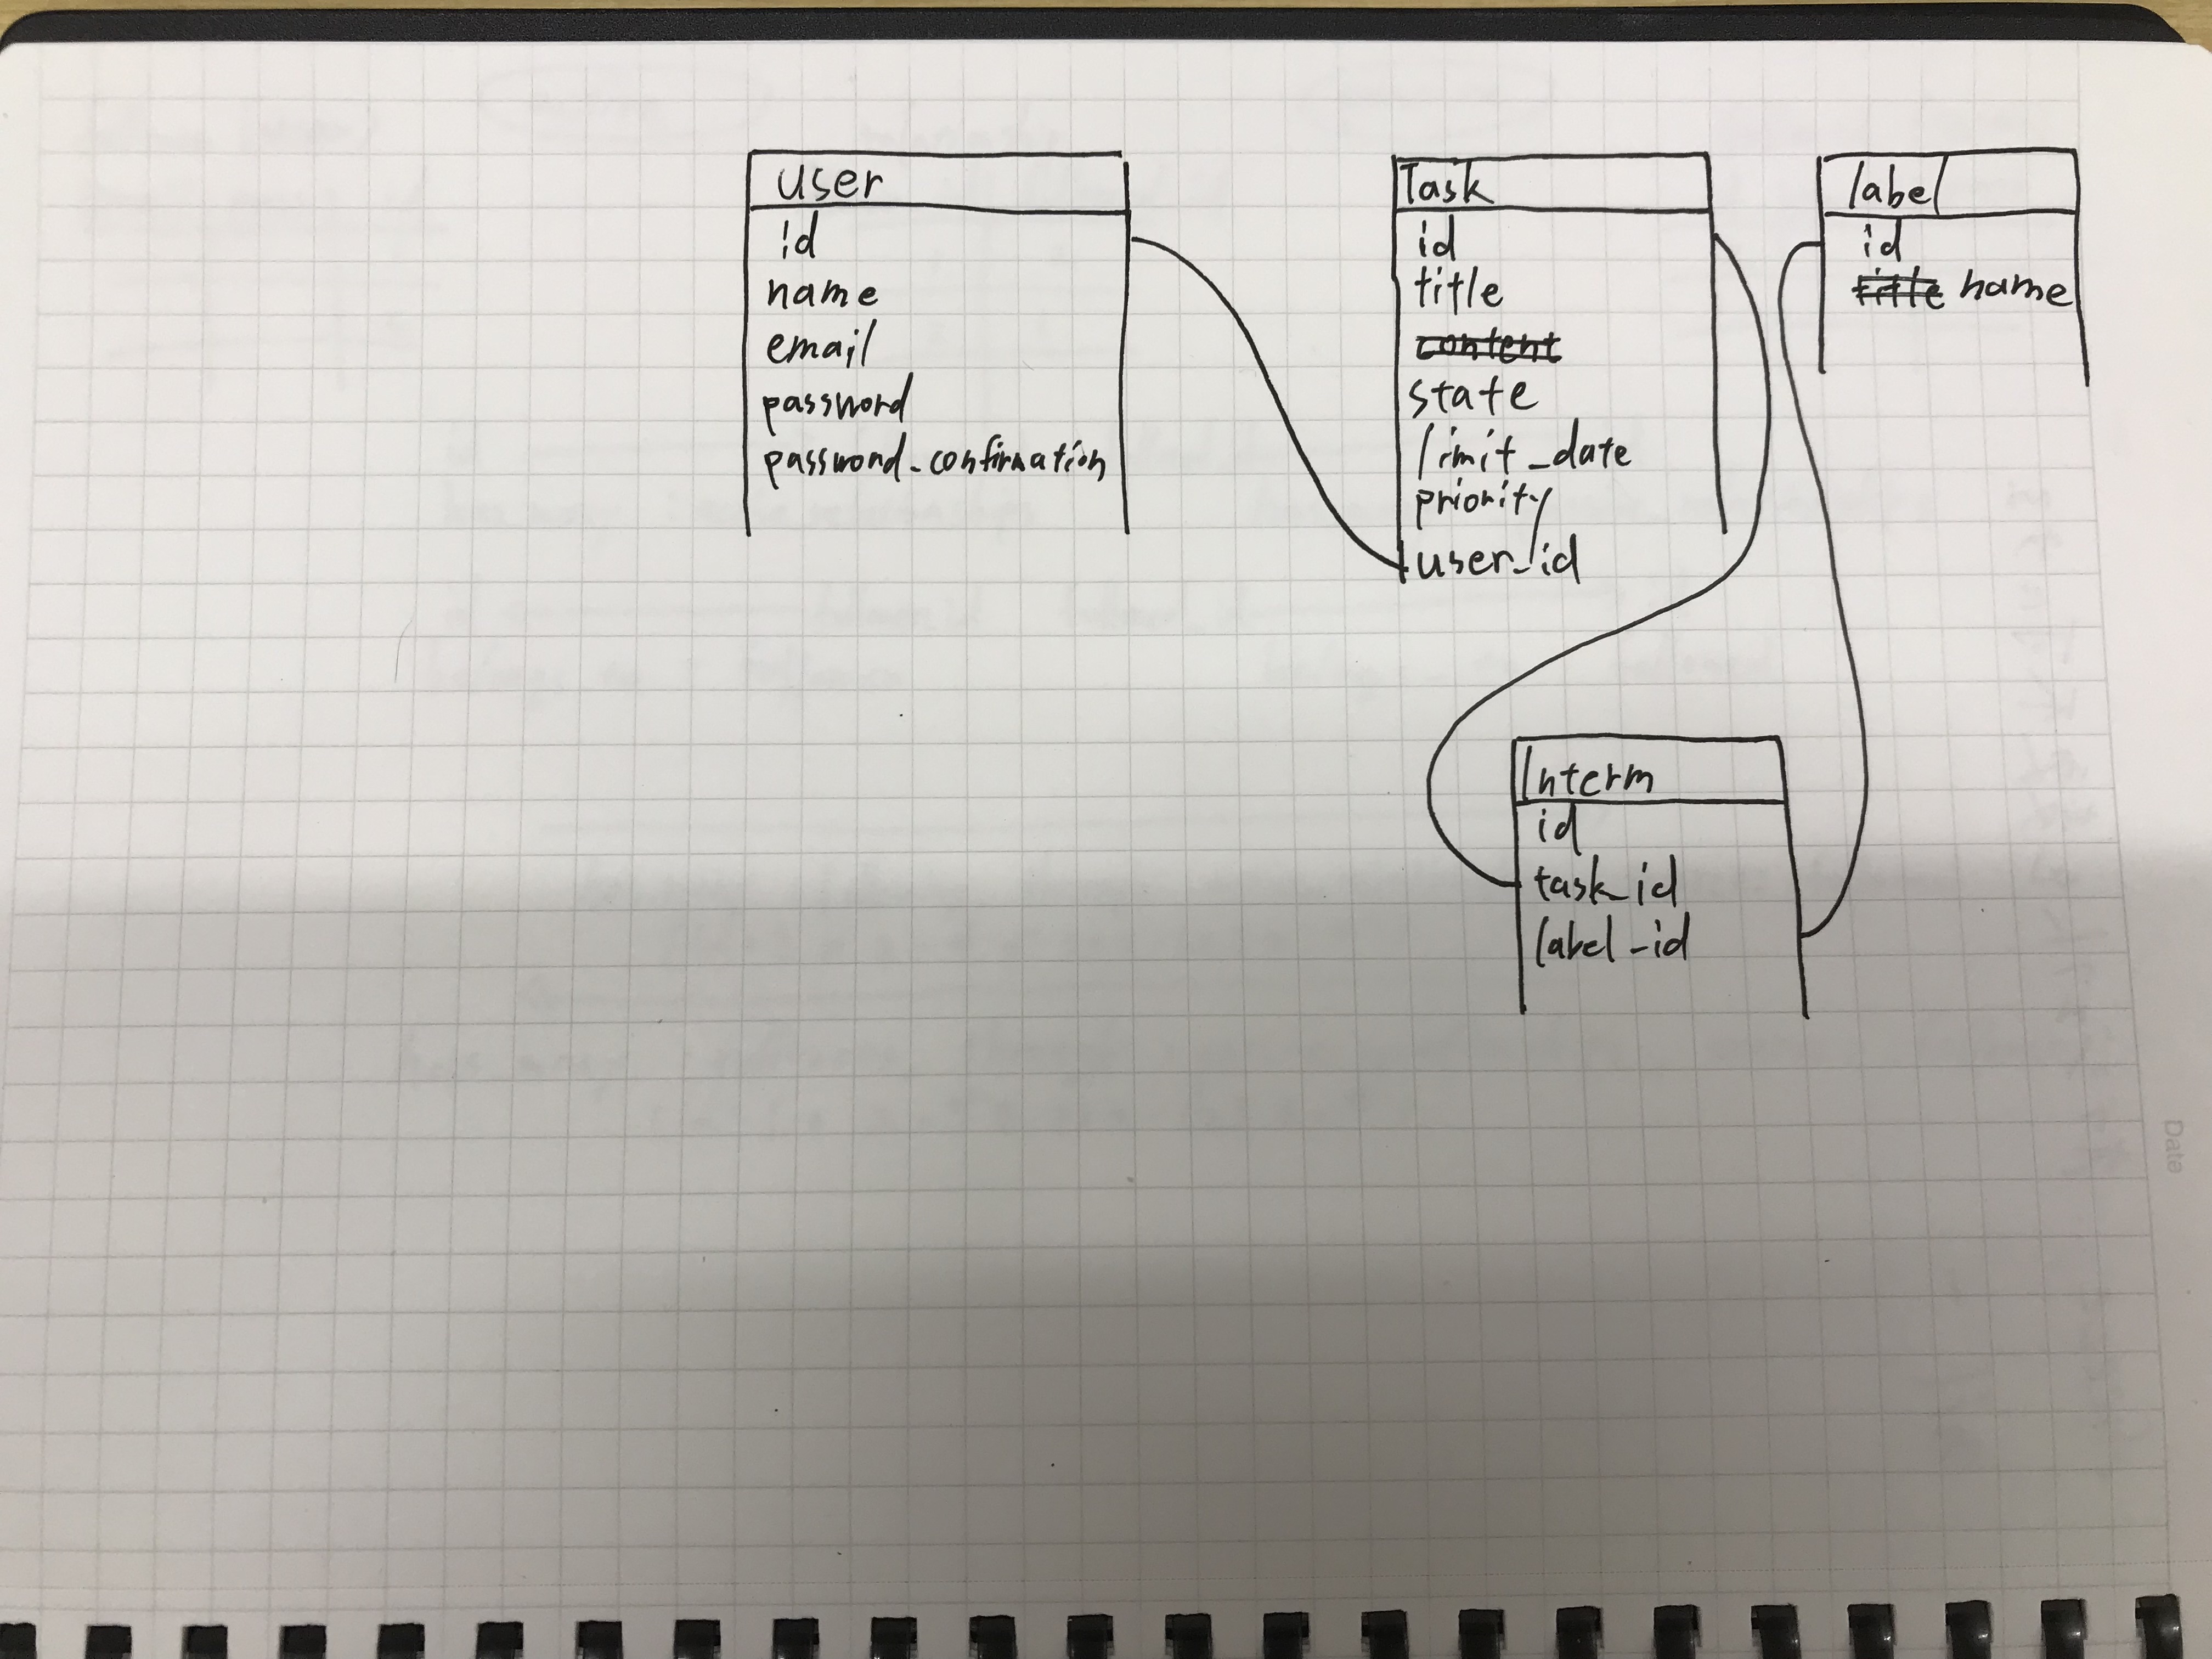 user
id
name
email
password
password_confirmation
Task
id
title
content
state
limit_date
priority
user_id
label
id
title name
Interm
id
task_id
label_id
Date